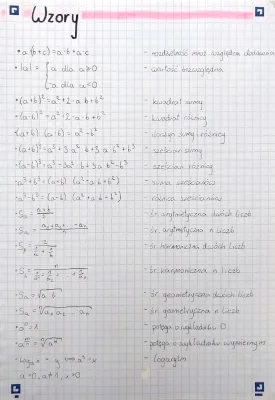 Wzory
• a(b+c) = a·b + a·c - rozdzielność względem dodawania
• |a| = { a dla a≥0 - wartość bezwzględna
-a dla a<0
• (a+b)² = a² + 2·a·b + b² - kwadrat sumy
• (a-b)² = a² - 2·a·b + b² - kwadrat różnicy
• (a+b)·(a-b) = a² - b² - iloczyn sumy i różnicy
• (a+b)³ = a³ + 3a²·b + 3a·b² + b³ - sześcian sumy
• (a-b)³ = a³ - 3a²·b + 3a·b² - b³ - sześcian różnicy
• a³+b³ = (a+b)·(a²-a·b+b²) - suma sześcianów
• a³-b³ = (a-b)·(a²+a·b+b²) - różnica sześcianów
- śr. arytmetyczna dwóch liczb
- śr. arytmetyczna n liczb
- śr. harmoniczna dwóch liczb
- śr. harmoniczna n liczb
- śr. geometryczna dwóch liczb
- śr. geometryczna n liczb
• a⁰ = 1 - potęga o wykładniku 0
- potęga o wykładniku wymiernym
- logarytm